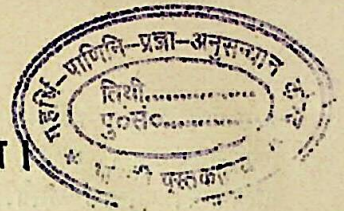 महर्षि-पाणिनि-प्रज्ञा-अनुसन्धान
तिथी..................
पु०स०..................
* पुस्तकाल